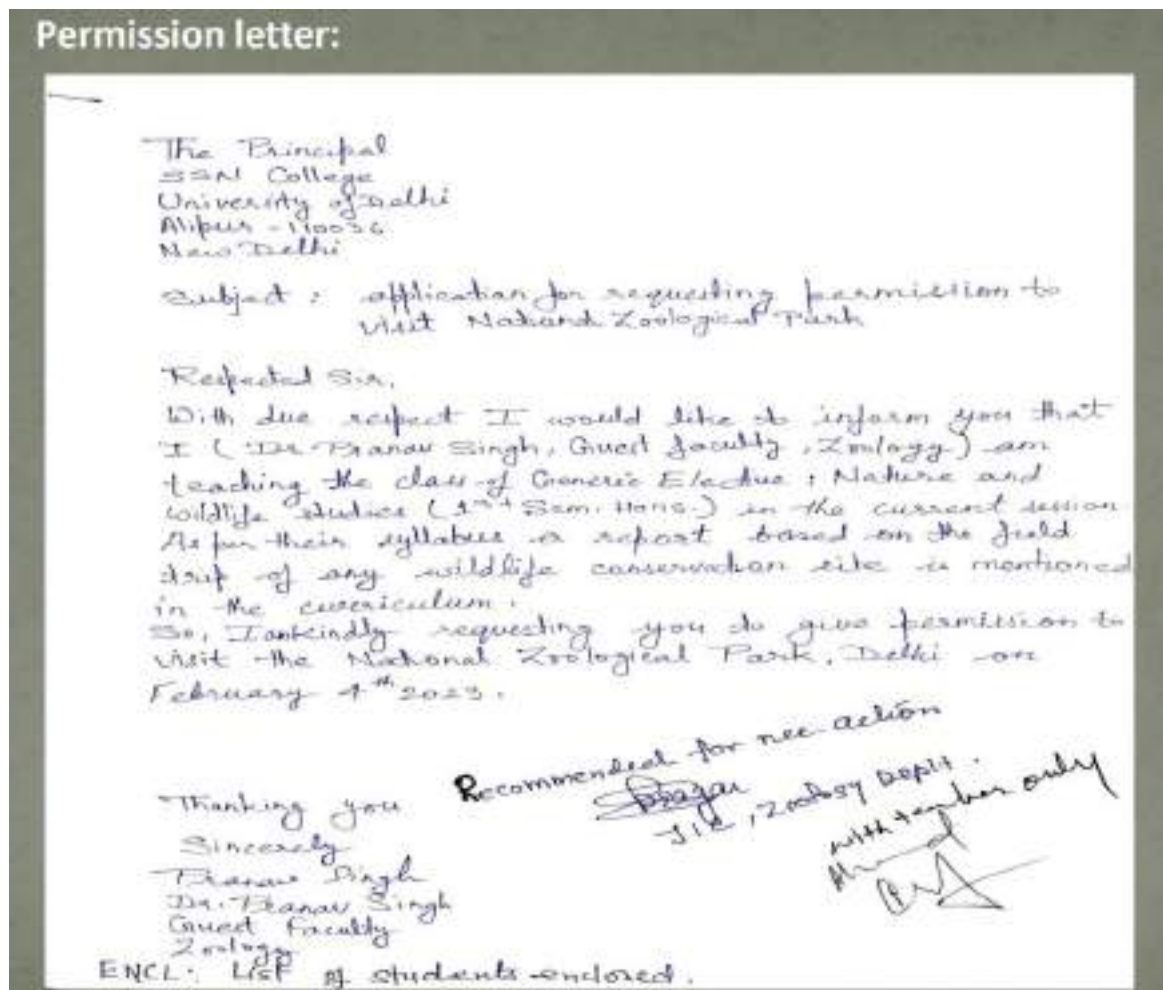 Permission letter:
The Principal
SSN College
University of Delhi
Alipur - 110036
New Delhi
Subject : application for requesting permission to
visit National Zoological Park
Respected Sir,
With due respect I would like to inform you that
I ( Dr. Pranav Singh, Guest faculty, Zoology) am
teaching the class of Generic Elective : Nature and
wildlife studies (1st Sem. Hons.) in the current session.
As per their syllabus a report based on the field
trip of any wildlife conservation site is mentioned
in the curriculum.
So, I am kindly requesting you to give permission to
visit the National Zoological Park, Delhi on
February 4th 2023.
Recommended for nec action
TIC, Zoology Deptt.
with teacher only
Thanking you
Sincerely
Pranav Singh
Dr. Pranav Singh
Guest Faculty
Zoology
ENCL: List of students enclosed.